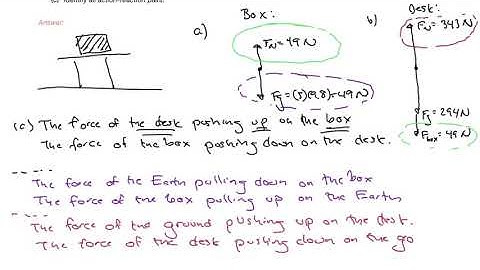 (c) Identify all action-reaction pairs.
Answer:
a)
Box:
F_N = 49 N
F_g = (5)(9.8) = 49 N
b)
Desk:
F_N = 343 N
F_g = 294 N
F_box = 49 N
(c) The force of the desk pushing up on the box
The force of the box pushing down on the desk.
The force of the Earth pulling down on the box
The force of the box pulling up on the Earth
The force of the ground pushing up on the desk.
The force of the desk pushing down on the go